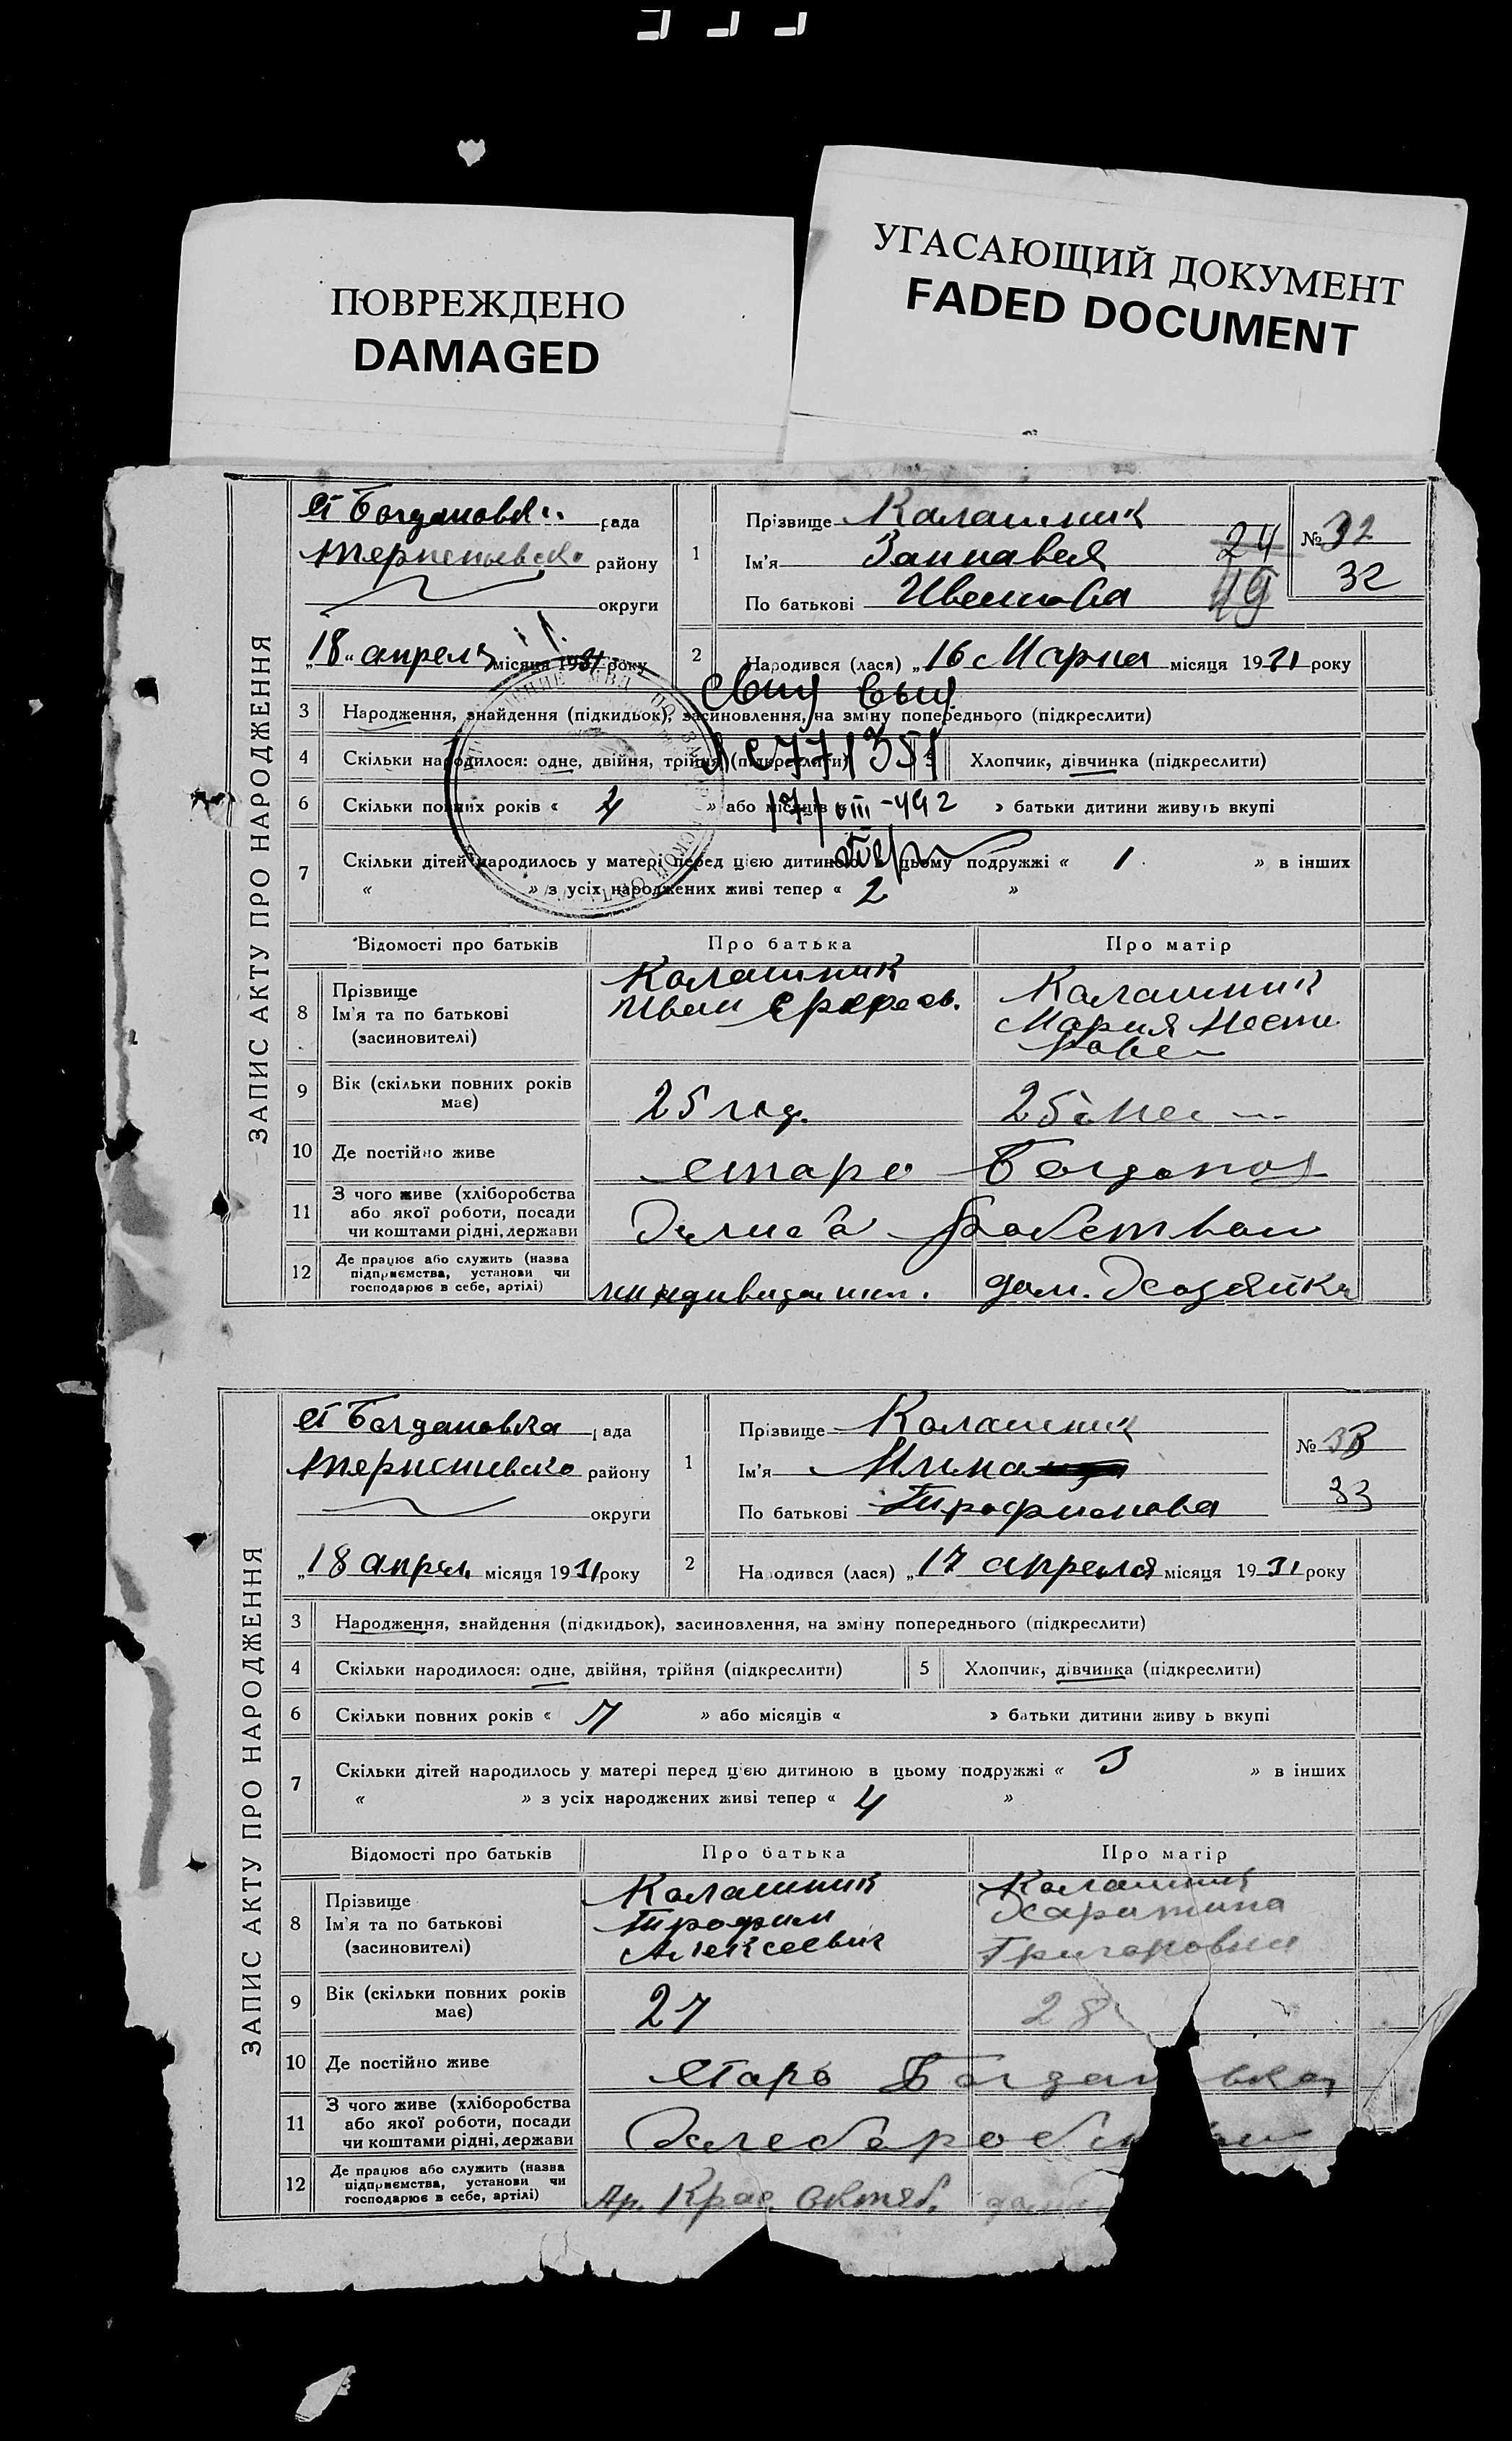 ПОВРЕЖДЕНО
DAMAGED
УГАСАЮЩИЙ ДОКУМЕНТ
FADED DOCUMENT
ЗАПИС АКТУ ПРО НАРОДЖЕННЯ
рада
району
округи
„18“ апреля місяця 1931 року
1 Прізвище Калашник
Ім'я
По батькові
24
19
№ 32
32
2 Народився (лася) „16 Марта місяця 1931 року
3 Народження, знайдення (підкидьок), засиновлення, на зміну попереднього (підкреслити)
4 Скільки народилося: одне, двійня, трійня (підкреслити) 5 Хлопчик, дівчинка (підкреслити)
6 Скільки повних років « 4 » або місяців « » батьки дитини живуть вкупі
7 Скільки дітей народилось у матері перед цією дитиною в цьому подружжі « 1 » в інших
« » з усіх народжених живі тепер « 2 »
Відомості про батьків Про батька Про матір
8 Прізвище
Ім'я та по батькові
(засиновителі)
Калашник
Иван
Калашник
Мария
9 Вік (скільки повних років має) 25 год. 25
10 Де постійно живе Старо
11 З чого живе (хліборобства або якої роботи, посади чи коштами рідні, держави
12 Де працює або служить (назва підприємства, установи чи господарює в себе, артілі) дом. Хозяйка
ЗАПИС АКТУ ПРО НАРОДЖЕННЯ
Ст Богдановка рада
району
округи
„18 апрел місяця 1931 року
1 Прізвище Калашник
Ім'я
По батькові Трофимова
№ 33
33
2 Народився (лася) „17 апреля місяця 1931 року
3 Народження, знайдення (підкидьок), засиновлення, на зміну попереднього (підкреслити)
4 Скільки народилося: одне, двійня, трійня (підкреслити) 5 Хлопчик, дівчинка (підкреслити)
6 Скільки повних років « 7 » або місяців « » батьки дитини живу ь вкупі
7 Скільки дітей народилось у матері перед цією дитиною в цьому подружжі « 3 » в інших
« » з усіх народжених живі тепер « 4 »
Відомості про батьків Про батька Про матір
8 Прізвище
Ім'я та по батькові
(засиновителі)
Калашник
Трофим
Алексеевич
Калашник
Харитина
Григоровна
9 Вік (скільки повних років має) 27 28
10 Де постійно живе Старо
11 З чого живе (хліборобства або якої роботи, посади чи коштами рідні, держави
12 Де працює або служить (назва підприємства, установи чи господарює в себе, артілі) Ар. Крас. Октяб.